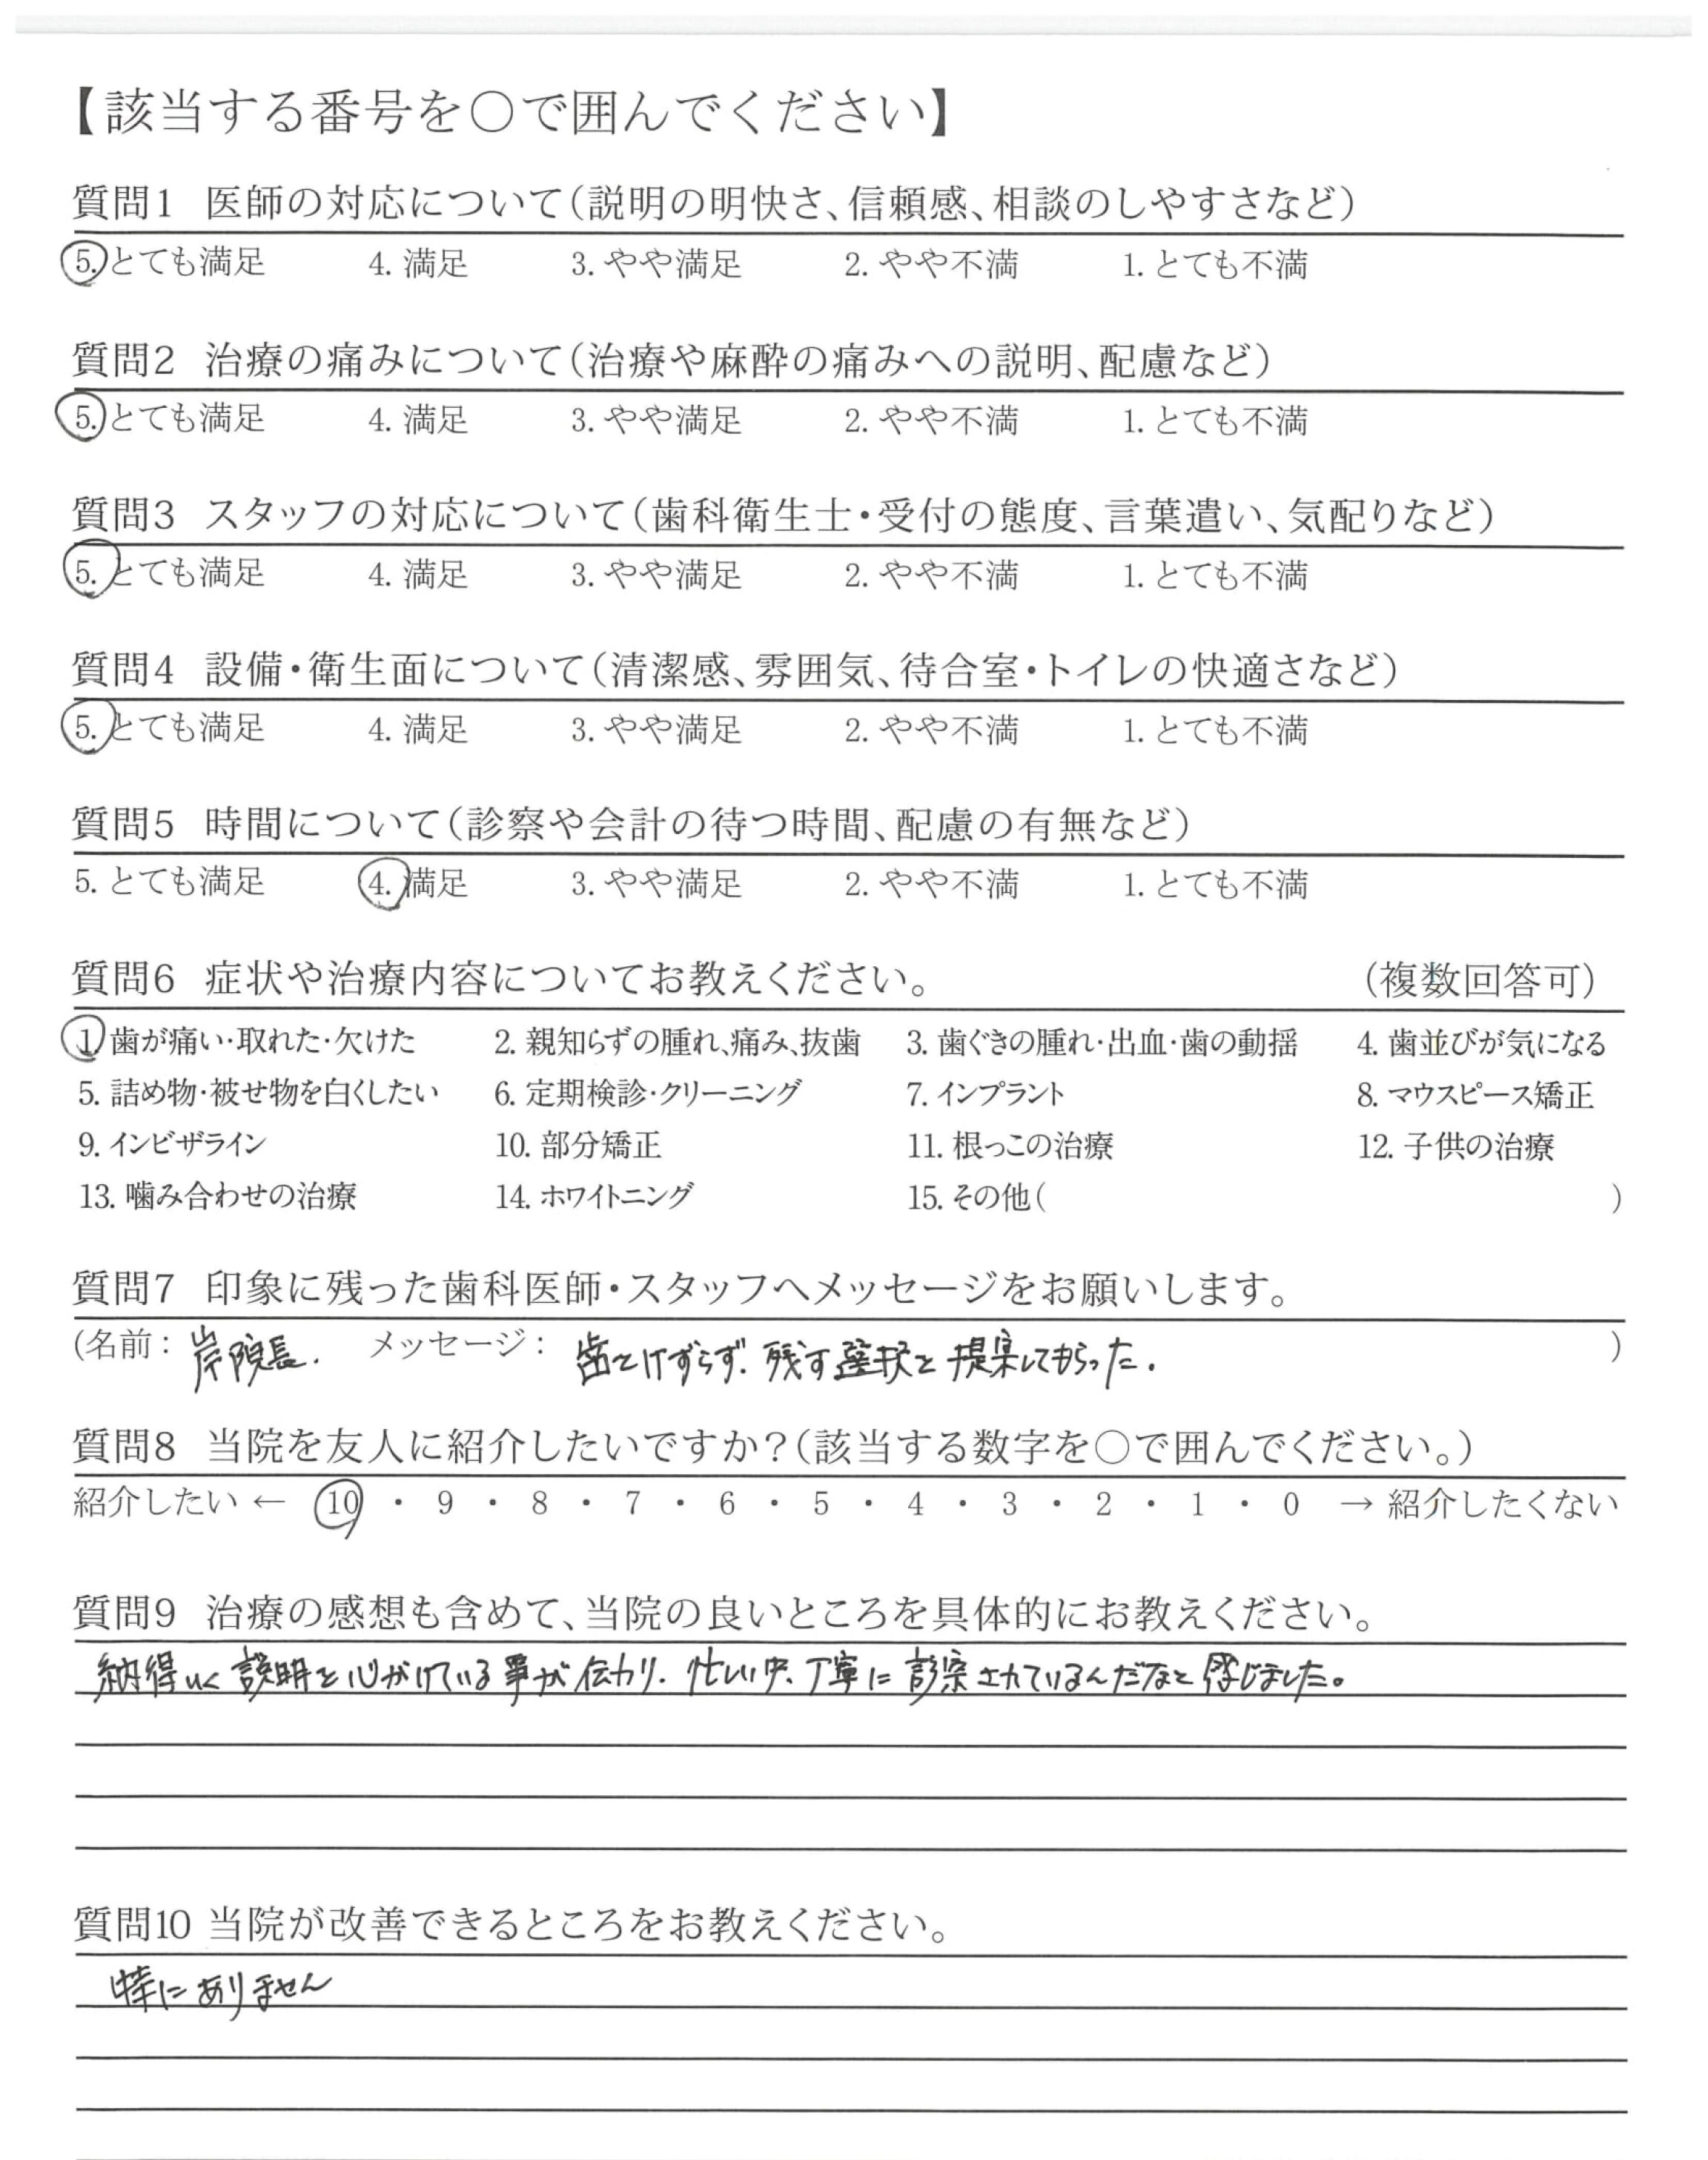 【該当する番号を〇で囲んでください】
質問1 医師の対応について(説明の明快さ、信頼感、相談のしやすさなど)
5. とても満足 4. 満足 3. やや満足 2. やや不満 1. とても不満
質問2 治療の痛みについて(治療や麻酔の痛みへの説明、配慮など)
5. とても満足 4. 満足 3. やや満足 2. やや不満 1. とても不満
質問3 スタッフの対応について(歯科衛生士・受付の態度、言葉遣い、気配りなど)
5. とても満足 4. 満足 3. やや満足 2. やや不満 1. とても不満
質問4 設備・衛生面について(清潔感、雰囲気、待合室・トイレの快適さなど)
5. とても満足 4. 満足 3. やや満足 2. やや不満 1. とても不満
質問5 時間について(診察や会計の待つ時間、配慮の有無など)
5. とても満足 4. 満足 3. やや満足 2. やや不満 1. とても不満
質問6 症状や治療内容についてお教えください。 (複数回答可)
1. 歯が痛い・取れた・欠けた 2. 親知らずの腫れ、痛み、抜歯 3. 歯ぐきの腫れ・出血・歯の動揺 4. 歯並びが気になる
5. 詰め物・被せ物を白くしたい 6. 定期検診・クリーニング 7. インプラント 8. マウスピース矯正
9. インビザライン 10. 部分矯正 11. 根っこの治療 12. 子供の治療
13. 噛み合わせの治療 14. ホワイトニング 15. その他( )
質問7 印象に残った歯科医師・スタッフへメッセージをお願いします。
(名前: 岸院長. メッセージ: 歯をけずらず. 残す選択を提案してもらった. )
質問8 当院を友人に紹介したいですか?(該当する数字を〇で囲んでください。)
紹介したい ← 10 ・ 9 ・ 8 ・ 7 ・ 6 ・ 5 ・ 4 ・ 3 ・ 2 ・ 1 ・ 0 → 紹介したくない
質問9 治療の感想も含めて、当院の良いところを具体的にお教えください。
納得いく説明を心がけている事が伝わり. 忙しい中、丁寧に診察されているんだなと感じました。
質問10 当院が改善できるところをお教えください。
特にありません